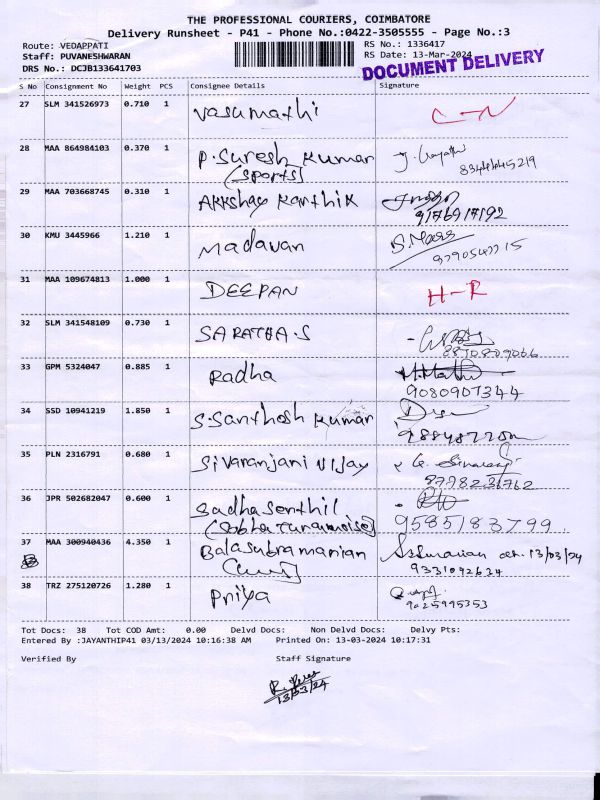 THE PROFESSIONAL COURIERS, COIMBATORE
Delivery Runsheet - P41 - Phone No.:0422-3505555 - Page No.:3
Route: VEDAPPATI
RS No.: 1336417
Staff: PUVANESHWARAN
RS Date: 13-Mar-2024
DRS No.: DCJB133641703
DOCUMENT DELIVERY
S No Consignment No Weight PCS Consignee Details Signature
27 SLM 341526973 0.710 1 Vasumathi
28 MAA 864984103 0.370 1 P. Suresh Kumar
(Sports) 8344445219
29 MAA 703668745 0.310 1 Akkshay Karthik
9176917192
30 KMU 3445966 1.210 1 Madavan
31 MAA 109674813 1.000 1 DEEPAN H-R
32 SLM 341548109 0.730 1 SARATHA.S
33 GPM 5324047 0.885 1 Radha
9080907344
34 SSD 10941219 1.850 1 S. Santhosh Kumar
35 PLN 2316791 0.680 1 Sivaranjani Vijay
36 JPR 502682047 0.600 1 Sadhasenthil
9585183799
37 MAA 300940436 4.350 1 Balasubramanian 13/03/24
9331092634
38 TRZ 275120726 1.280 1 Priya
9025995353
Tot Docs: 38 Tot COD Amt: 0.00 Delvd Docs: Non Delvd Docs: Delvy Pts:
Entered By :JAYANTHIP41 03/13/2024 10:16:38 AM Printed On: 13-03-2024 10:17:31
Verified By Staff Signature
13/03/24